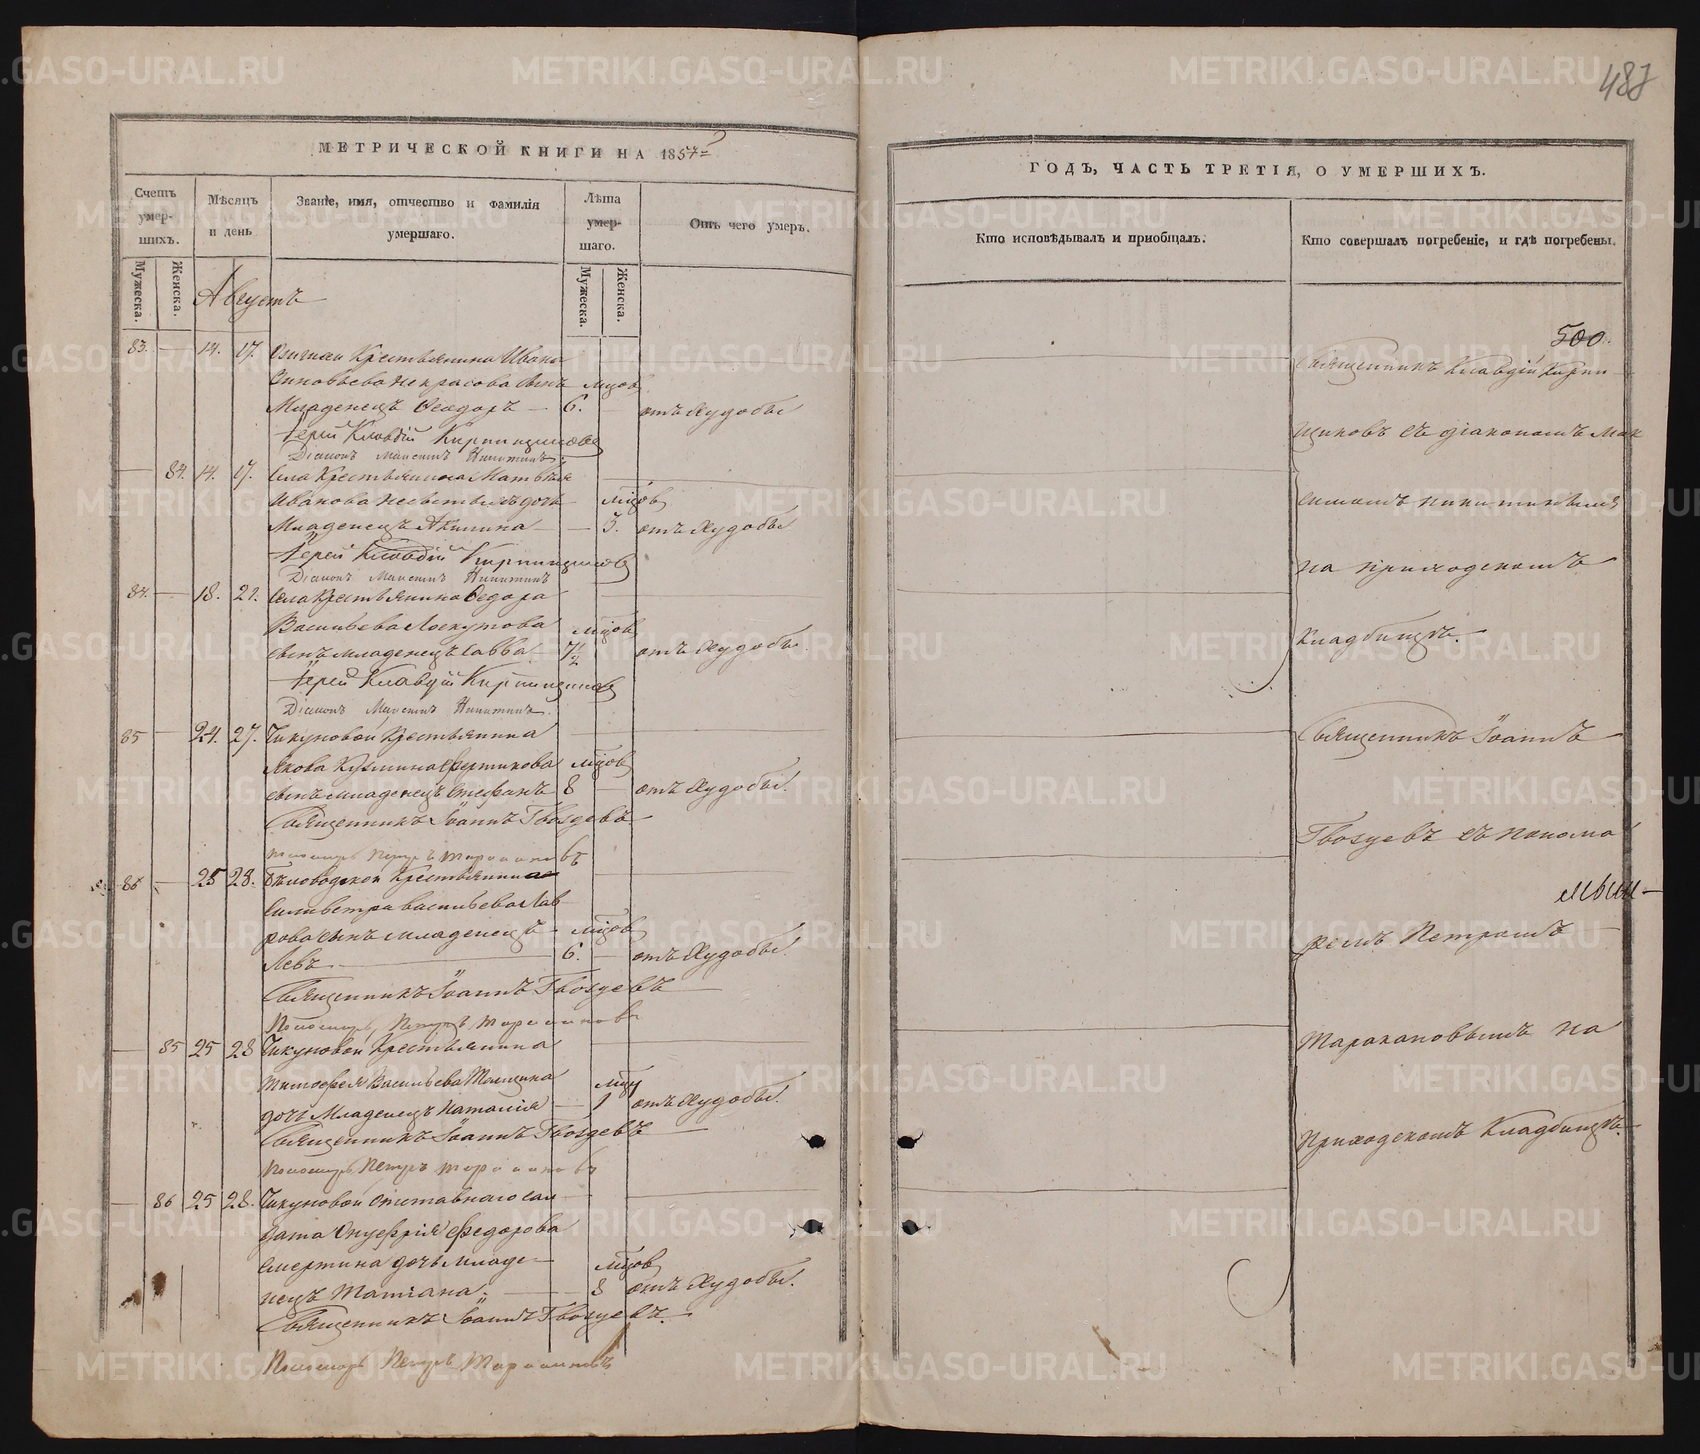 487
МЕТРИЧЕСКОЙ КНИГИ НА 1857=
Счетъ умершихъ.
Мѣсяцъ и день
Званіе, имя, отчество и фамилія умершаго.
Лѣта умершаго.
Отъ чего умеръ.
Мужеска.
Женска.
Мужеска.
Женска.
Августъ
83. — 14. 17.
Крестьянина Ивана
Некрасова сынъ мцов
Младенецъ Феодоръ — 6. — отъ худобы
Іерей Клавдій Кирпищиковъ
Діаконъ Максимъ Никитинъ
— 84. 14. 17. Села Крестьянина Матвѣя
Иванова дочь мцов
Младенецъ Акилина — 3. отъ худобы
Іерей Клавдій Кирпищиковъ
Діаконъ Максимъ Никитинъ
84. — 18. 21. Села Крестьянина Федора
Васильева Лоскутова мцов
сынъ младенецъ Савва. 7 1/2 отъ худобы.
Іерей Клавдій Кирпищиковъ
Діаконъ Максимъ Никитинъ.
85 — 24. 27. Чикуновой Крестьянина
Якова Кузмина Фертикова мцов
сынъ младенецъ Стефанъ 8 — отъ худобы.
Священникъ Іоаннъ Гвоздевъ
Пономарь Петръ Таракановъ
86 — 25 28. Бѣловодской Крестьянина
Сильвестра Васильева Лав
рова сынъ младенецъ — мцов
Левъ — 6. — отъ худобы.
Священникъ Іоаннъ Гвоздевъ
Пономарь Петръ Таракановъ
— 85 25 28 Чикуновой Крестьянина
Тимофея Васильева мцу
дочь Младенецъ Наталія — 1 отъ худобы.
Священникъ Іоаннъ Гвоздевъ
Пономарь Петръ Таракановъ
— 86 25 28. Чикуновой отставнаго сол
дата Онуфрія Федорова
Смертина дочь младе- мцов
нецъ Татіана. — 8 отъ худобы.
Священникъ Іоаннъ Гвоздевъ.
Пономарь Петръ Таракановъ
ГОДЪ, ЧАСТЬ ТРЕТІЯ, О УМЕРШИХЪ.
Кто исповѣдывалъ и пріобщалъ.
Кто совершалъ погребеніе, и гдѣ погребены.
500.
Священникъ Клавдій Кирпи
щиковъ съ діакономъ Мак
симомъ Никитинымъ
на приходскомъ
кладбищѣ.
Священникъ Іоаннъ
Гвоздевъ съ понома
ремъ Петромъ
Таракановымъ на
приходскомъ кладбищѣ.
METRIKI.GASO-URAL.RU